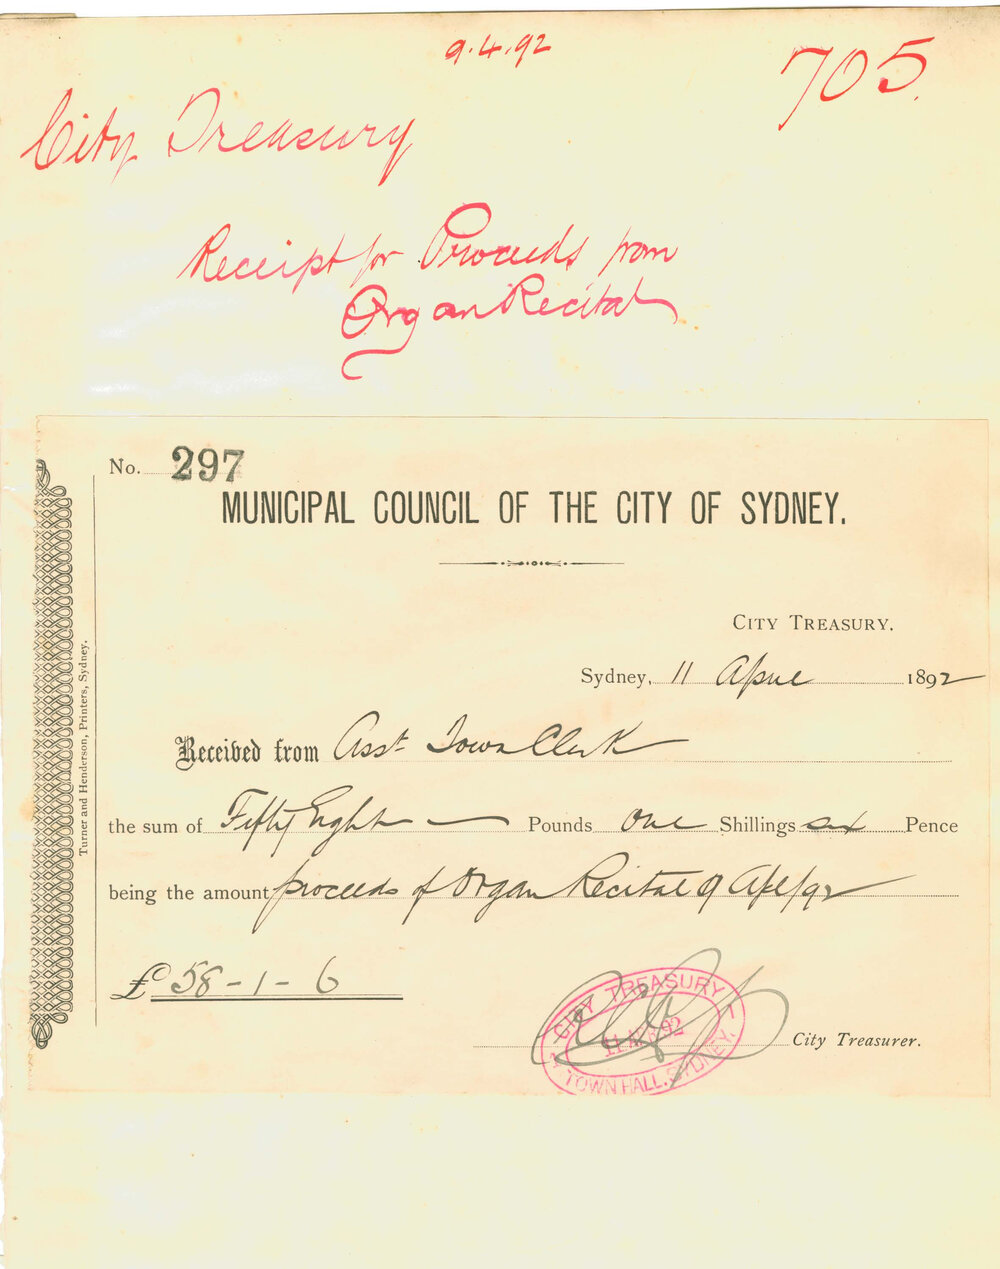 9.4.92
705.
City Treasury
Receipt for Proceeds from
Organ Recital
No. 297
MUNICIPAL COUNCIL OF THE CITY OF SYDNEY.
CITY TREASURY.
Sydney, 11 April 1892
Received from Asst Town Clerk
the sum of Fifty Eight Pounds one Shillings six Pence
being the amount proceeds of Organ Recital 9 Apl/92
£ 58-1-6
City Treasurer.
CITY TREASURY
11 APR 92
TOWN HALL, SYDNEY.
Turner and Henderson, Printers, Sydney.